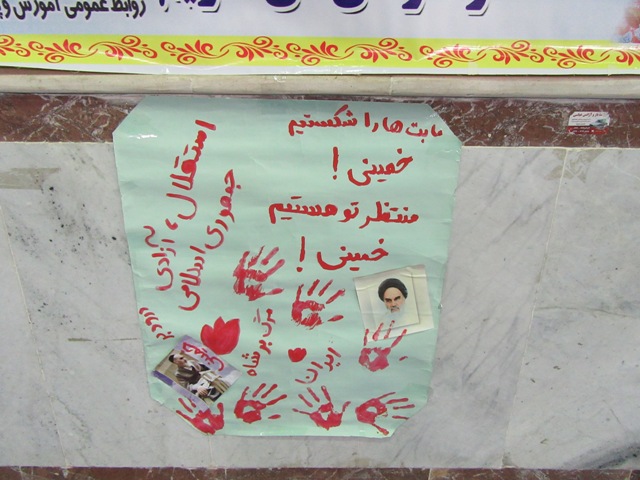 روابط عمومی آموزش و پ
ما بت ها را شکستیم
خمینی !
منتظر تو هستیم
خمینی !
استقلال، آزادی
جمهوری اسلامی
مرگ بر شاه
ایران
خمینی